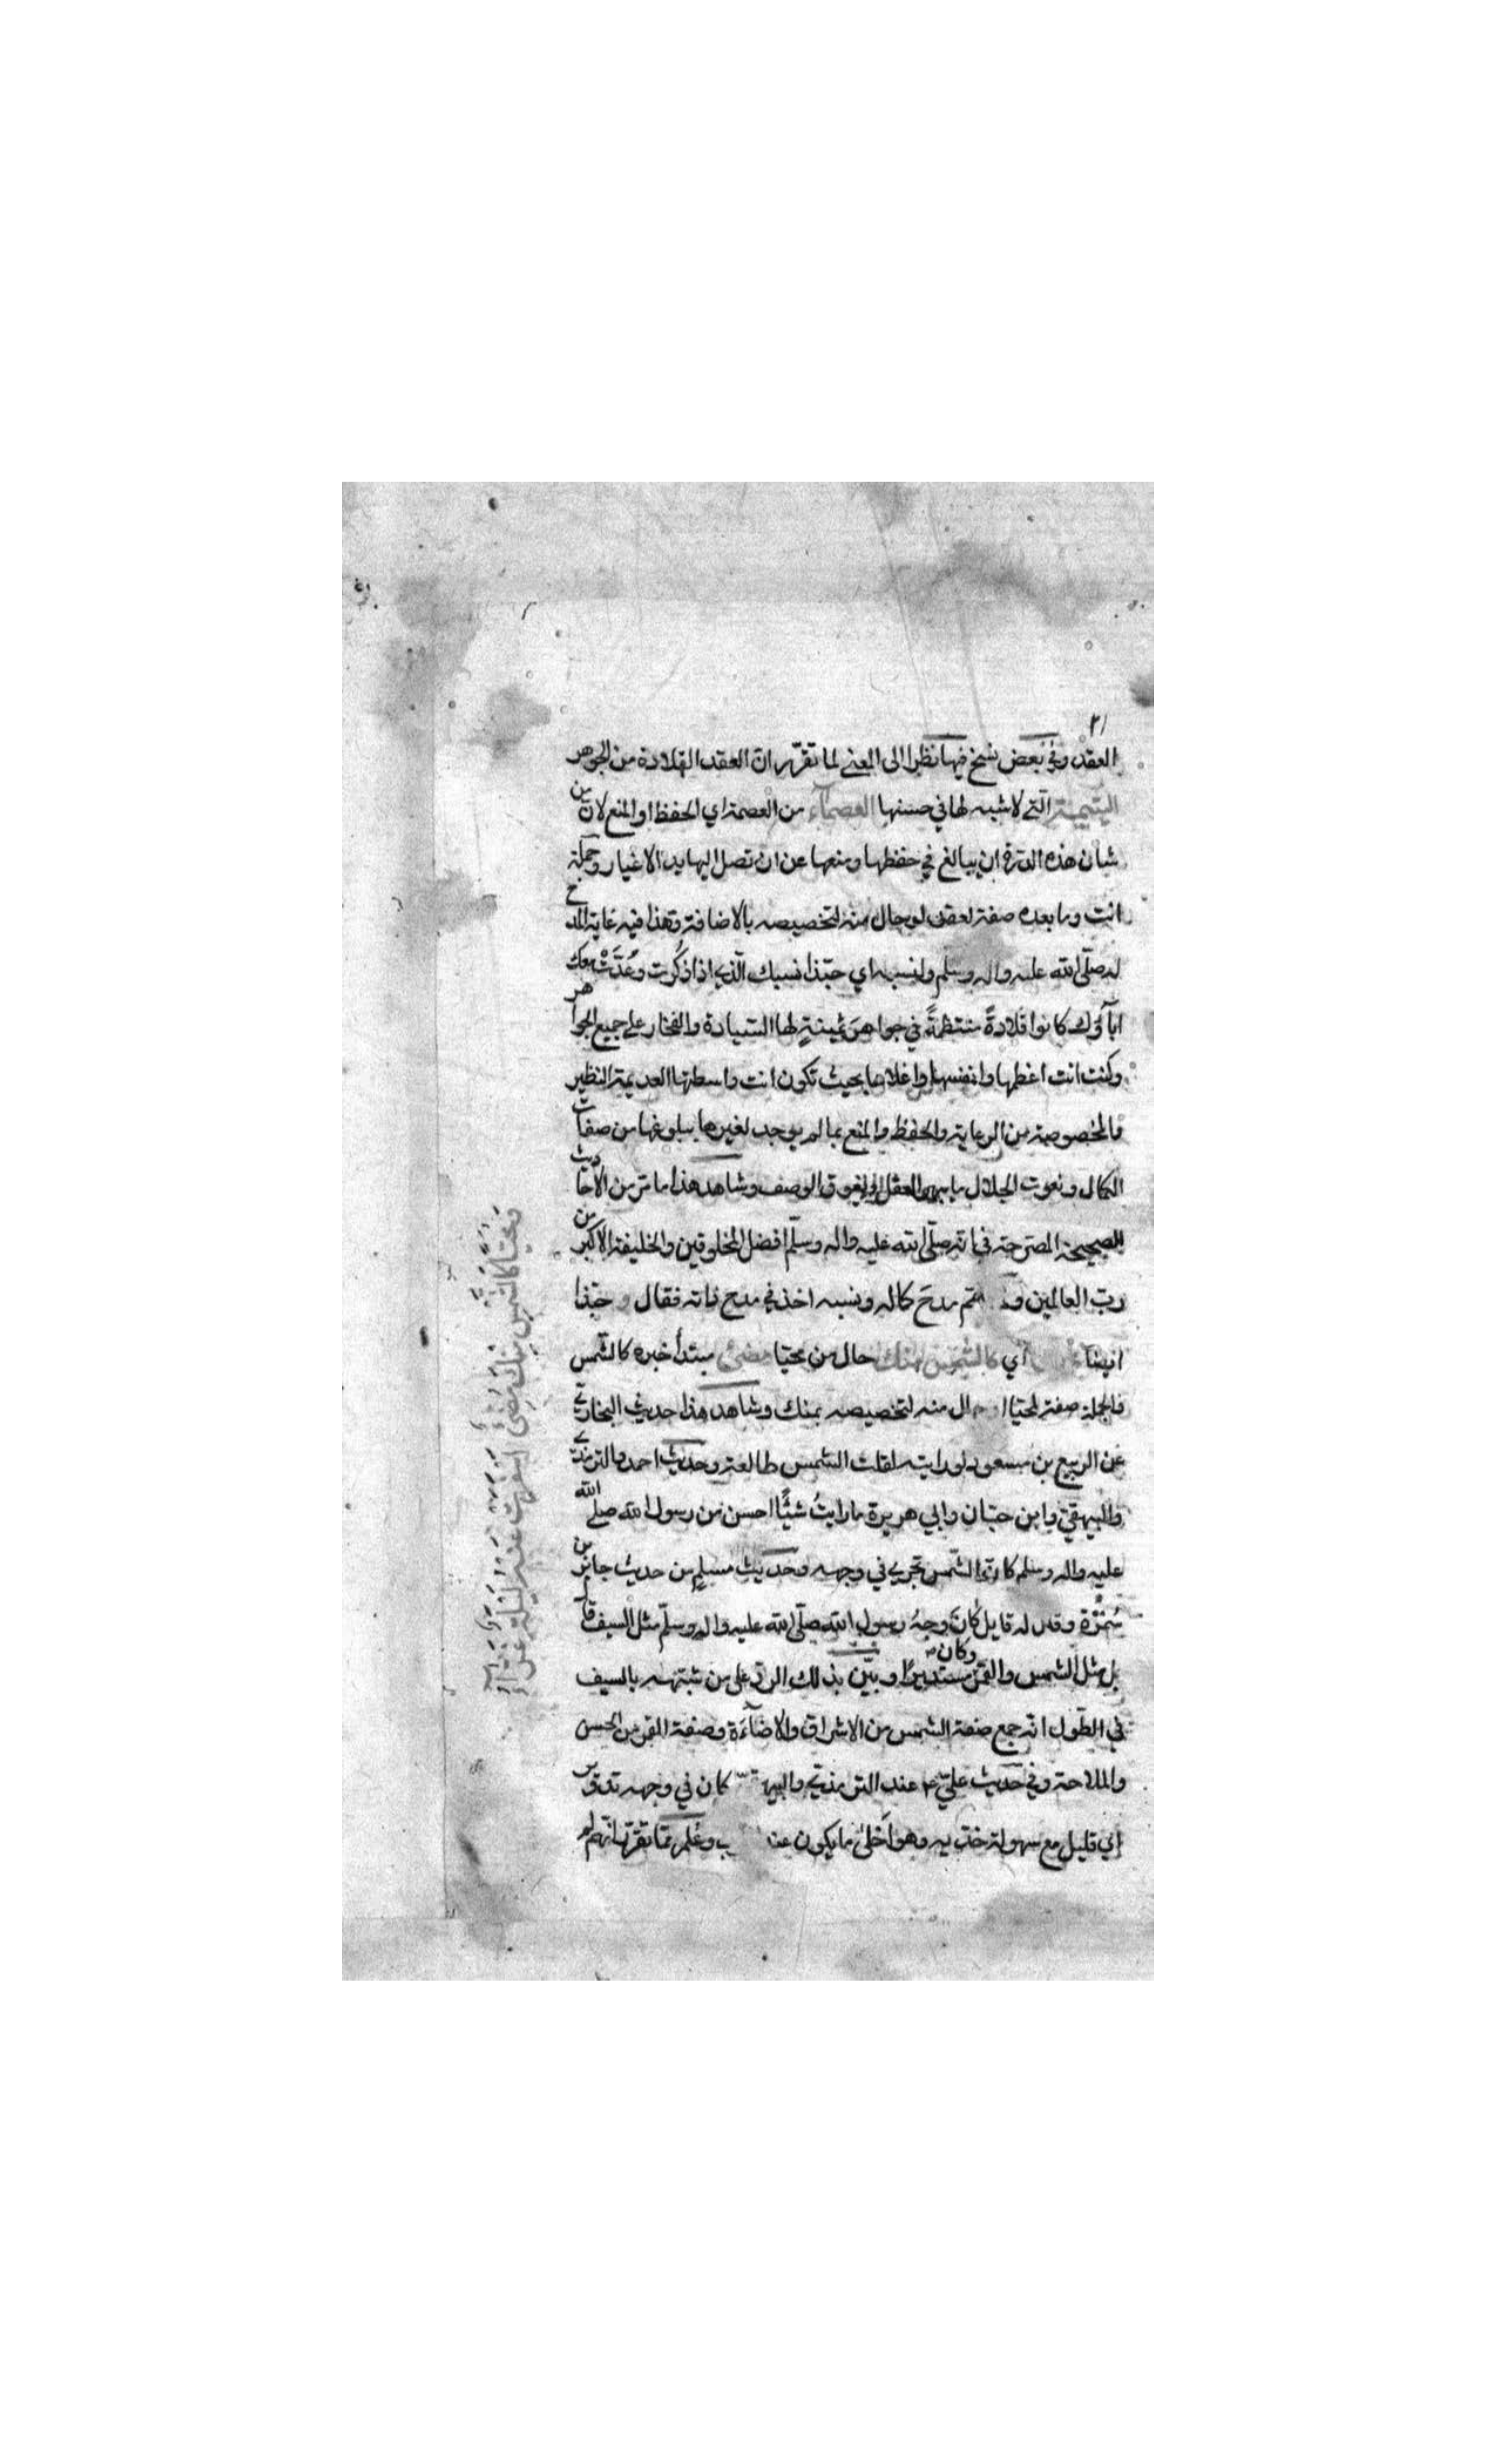 ٢١
العقد وفي بعض نسخ فيها نظرا الى المعنى لما تقرّر انّ العقد القلادة من الجوهر
اليتيمة الّتي لا شبيه لها في حسنها العصمآء من العصمة اي الحفظ او المنع لانّ من
شان هذه الدرة ان يبالغ في حفظها ومنعها عن ان تصل اليها يد الاغيار وجملة
انت وما بعده صفة لعقد او حال منه لتخصيصه بالاضافة وهذا فيه غاية المدح
له صلّى الله عليه واله وسلّم ولنسبه اي حبّذا نسبك الّذي اذا ذُكرت وعُدَّتْ معك
ابآؤك كانوا قلادةً منتظمةً في جواهرَ ثمينةٍ لها السيادة والفخار على جميع الجواهر
وكنت انت اعظمها وانفسها واغلاها بحيث تكون انت واسطتها العديمة النظير
فالمخصوصة من الرعاية والحفظ والمنع بما لم يوجد لغيرها ببلوغها من صفات
الكمال ونعوت الجلال ما يبهر العقل ويفوق الوصف وشاهد هذا ما مرّ من الاحاديث
الصحيحة المصرحة في انّه صلّى الله عليه واله وسلّم افضل المخلوقين والخليفة الاكبر من
ربّ العالمين مدحَ كماله ونسبه اخذ في مدح ذاته فقال و حبّذا
ايضا اي كالشمس منك حال من محيّا مضئ مبتدأ خبره كالشّمس
فالجملة صفة لمحيّا ا ال منه لتخصيصه بمنك وشاهد هذا حديث البخاريّ
عن الربيع بن مسعود لو رايته لقلت الشمس طالعة وحديث احمد والترمذيّ
والبيهقيّ وابن حبّان وابي هريرة ما رايتُ شيئًا احسن من رسول الله صلى الله
عليه واله وسلم كانّ الشّمس تجري في وجهه وحديث مسلمٍ من حديث جابر بن
سُمُرَة وقد له قايل كَانَ وجهُ رسول الله صلّى الله عليه واله وسلّم مثل السيف قال
بل مثل الشمس والقمر وكان مستديرًا وبيّن بذلك الردّ على من شبّهه بالسيف
في الطول انّه جمع صفة الشمس من الاشراق والاضآءة وصفة القمر من الحسن
والملاحة وفي حديث عليّ ع عند الترمذيّ كان في وجهه تدوير
اي قليل مع سهولة خدّيه وهو احَلىٰ ما يكون عند وعُلم ممّا تقرّر انّهم لم
ومحيّا كالشّمس منك مُضئ اسفرت عنه ليلة غرّآء